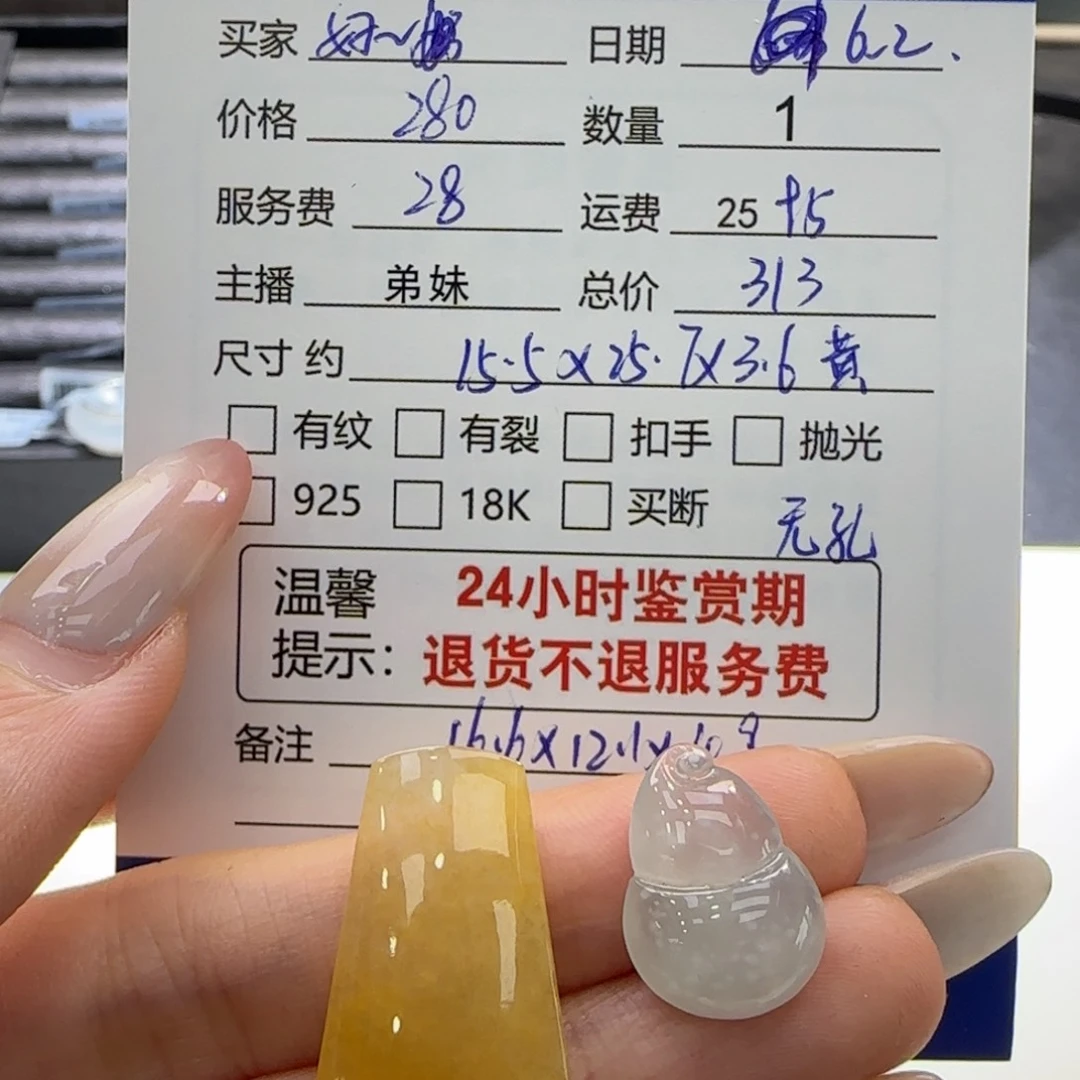 买家 好~ 日期 6.2.
价格 280 数量 1
服务费 28 运费 25 +5
主播 弟妹 总价 313
尺寸 约 15.5×25.7×3.6 黄
有纹 有裂 扣手 抛光
925 18K 买断 无孔
温馨 24小时鉴赏期
提示: 退货不退服务费
备注 16.6×12.1×10.9